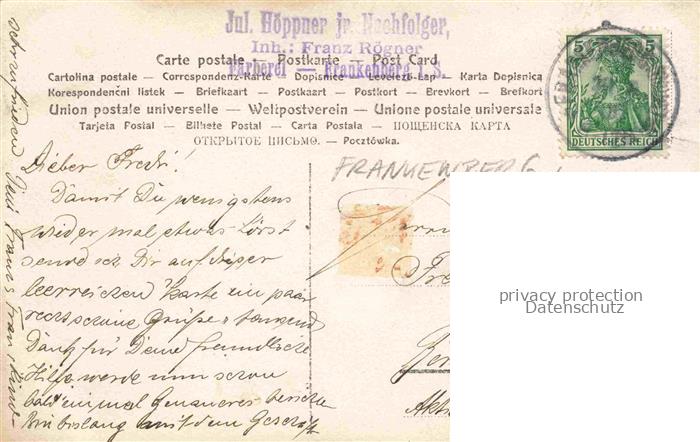 Jul. Höppner jr. Nachfolger,
Inh.: Franz Rögner
Färberei — Frankenberg i. S.
Carte postale — Postkarte — Post Card
Cartolina postale — Correspondenz-Karte — Dopisnice — Levelező-Lap — Karta Dopisnica
Korespondenční lístek — Briefkaart — Postkaart — Postkort — Brevkort — Brefkort
Union postale universelle — Weltpostverein — Unione postale universale
Tarjeta Postal — Bilhete Postal — Carta Postala — ПОЩЕНСКА КАРТА
ОТКРЫТОЕ ПИСЬМО. — Pocztówka.
5 5
DEUTSCHES REICH
FRANKENBERG
Lieber Fredi!
Damit Du wenigstens
wieder mal etwas hörst
send ich Dir auf dieser
leerreichen Karte ein paar
recht schöne Grüße & tausend
Dank für Deine freundliche
Hilfe werde nun schon
bald einmal Genaueres berichten
bin bislang mit dem Geschäft
sehr zufrieden Dein Franz
privacy protection
Datenschutz